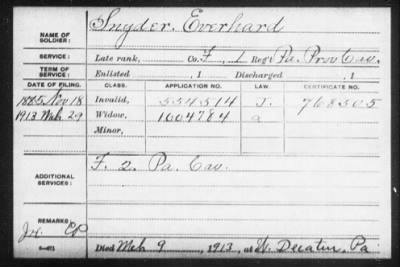 NAME OF SOLDIER: Snyder, Everhard
SERVICE: Late rank, Co. F, 1 Reg't Pa. Prov. Cav.
TERM OF SERVICE: Enlisted , 1 Discharged , 1
DATE OF FILING. CLASS. APPLICATION NO. LAW. CERTIFICATE NO.
1885 Nov 18 Invalid, 554514 J. 768505
1913 Mch 29 Widow, 1004784 a
Minor,
ADDITIONAL SERVICES: F. 2. Pa. Cav.
REMARKS:
Died Mch 9, 1913, at W. Decatur, Pa